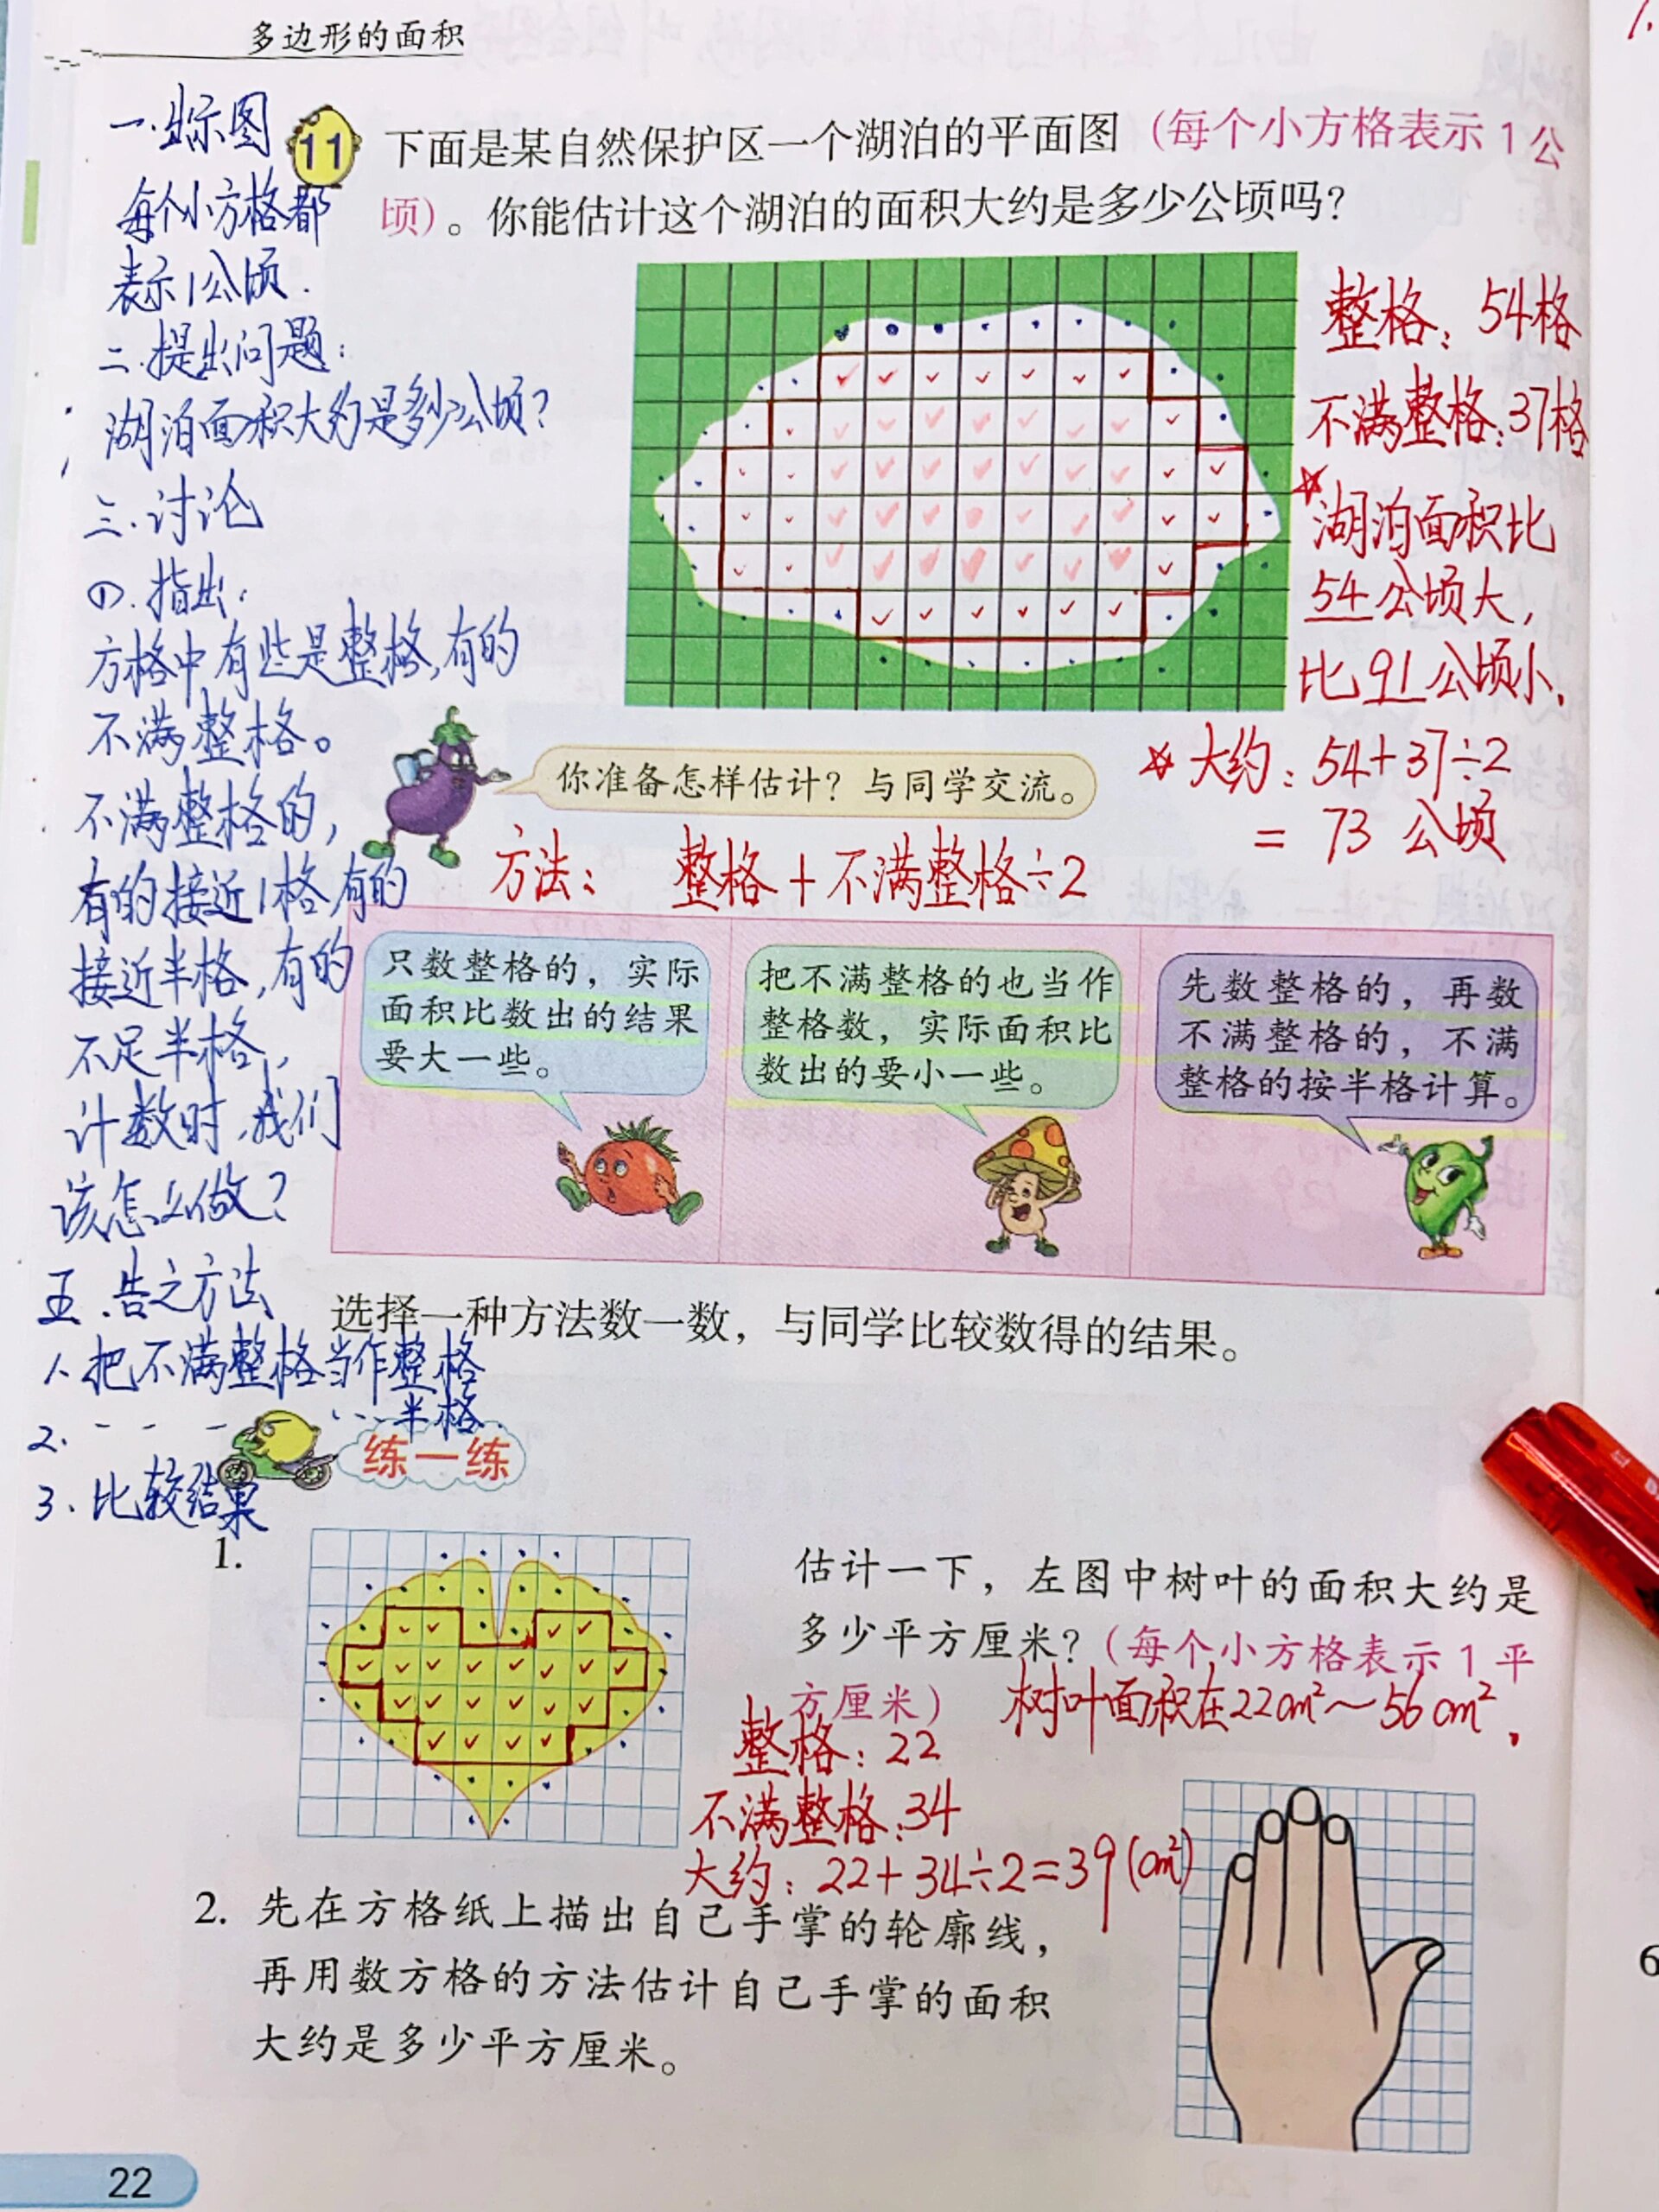 多边形的面积
一.出示图
每个小方格都
表示1公顷.
二.提出问题:
湖泊面积大约是多少公顷?
三.讨论
①.指出:
方格中有些是整格,有的
不满整格。
不满整格的,
有的接近1格,有的
接近半格,有的
不足半格,
计数时,我们
该怎么做?
五.告之方法
1.把不满整格当作整格
2. - - - ...半格
3.比较结果
11 下面是某自然保护区一个湖泊的平面图（每个小方格表示1公
顷）。你能估计这个湖泊的面积大约是多少公顷吗？
整格:54格
不满整格:37格
☆湖泊面积比
54公顷大,
比91公顷小.
☆大约:54+37÷2
=73公顷
你准备怎样估计？与同学交流。
方法: 整格+不满整格÷2
只数整格的，实际
面积比数出的结果
要大一些。
把不满整格的也当作
整格数，实际面积比
数出的要小一些。
先数整格的，再数
不满整格的，不满
整格的按半格计算。
选择一种方法数一数，与同学比较数得的结果。
练一练
1.
估计一下，左图中树叶的面积大约是
多少平方厘米？（每个小方格表示1平
方厘米）
树叶面积在22cm²~56cm².
整格:22
不满整格:34
大约:22+34÷2=39(cm²)
2. 先在方格纸上描出自己手掌的轮廓线，
再用数方格的方法估计自己手掌的面积
大约是多少平方厘米。
22
6